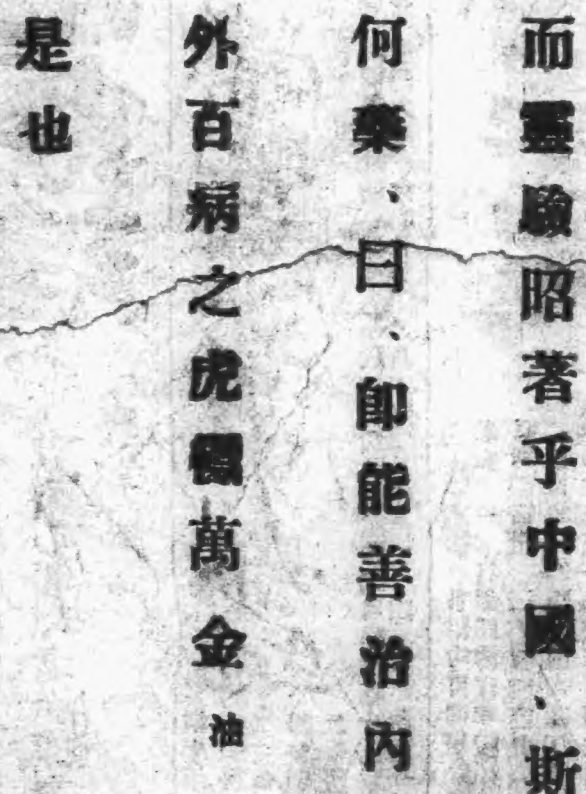 而靈驗昭著乎中國、斯
何藥、曰、卽能善治內
外百病之虎標萬金油
是也